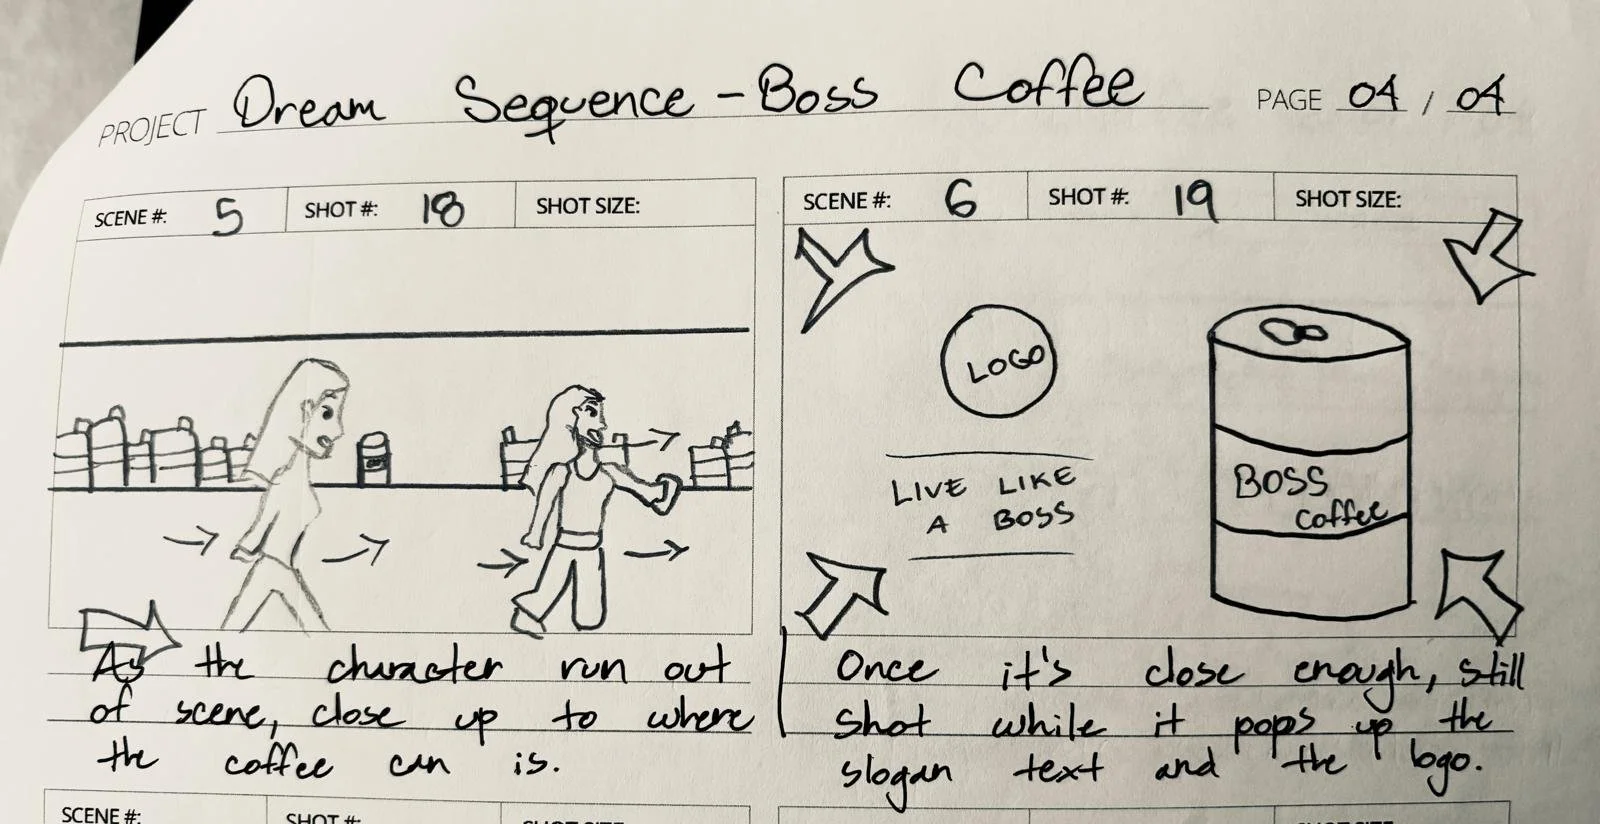 PROJECT Dream Sequence - Boss Coffee PAGE 04 / 04
SCENE #: 5 SHOT #: 18 SHOT SIZE:
As the character run out
of scene, close up to where
the coffee can is.
SCENE #: 6 SHOT #: 19 SHOT SIZE:
LOGO
LIVE LIKE
A BOSS
BOSS
Coffee
Once it's close enough, still
shot while it pops up the
slogan text and the logo.
SCENE #: SHOT #: SHOT SIZE: